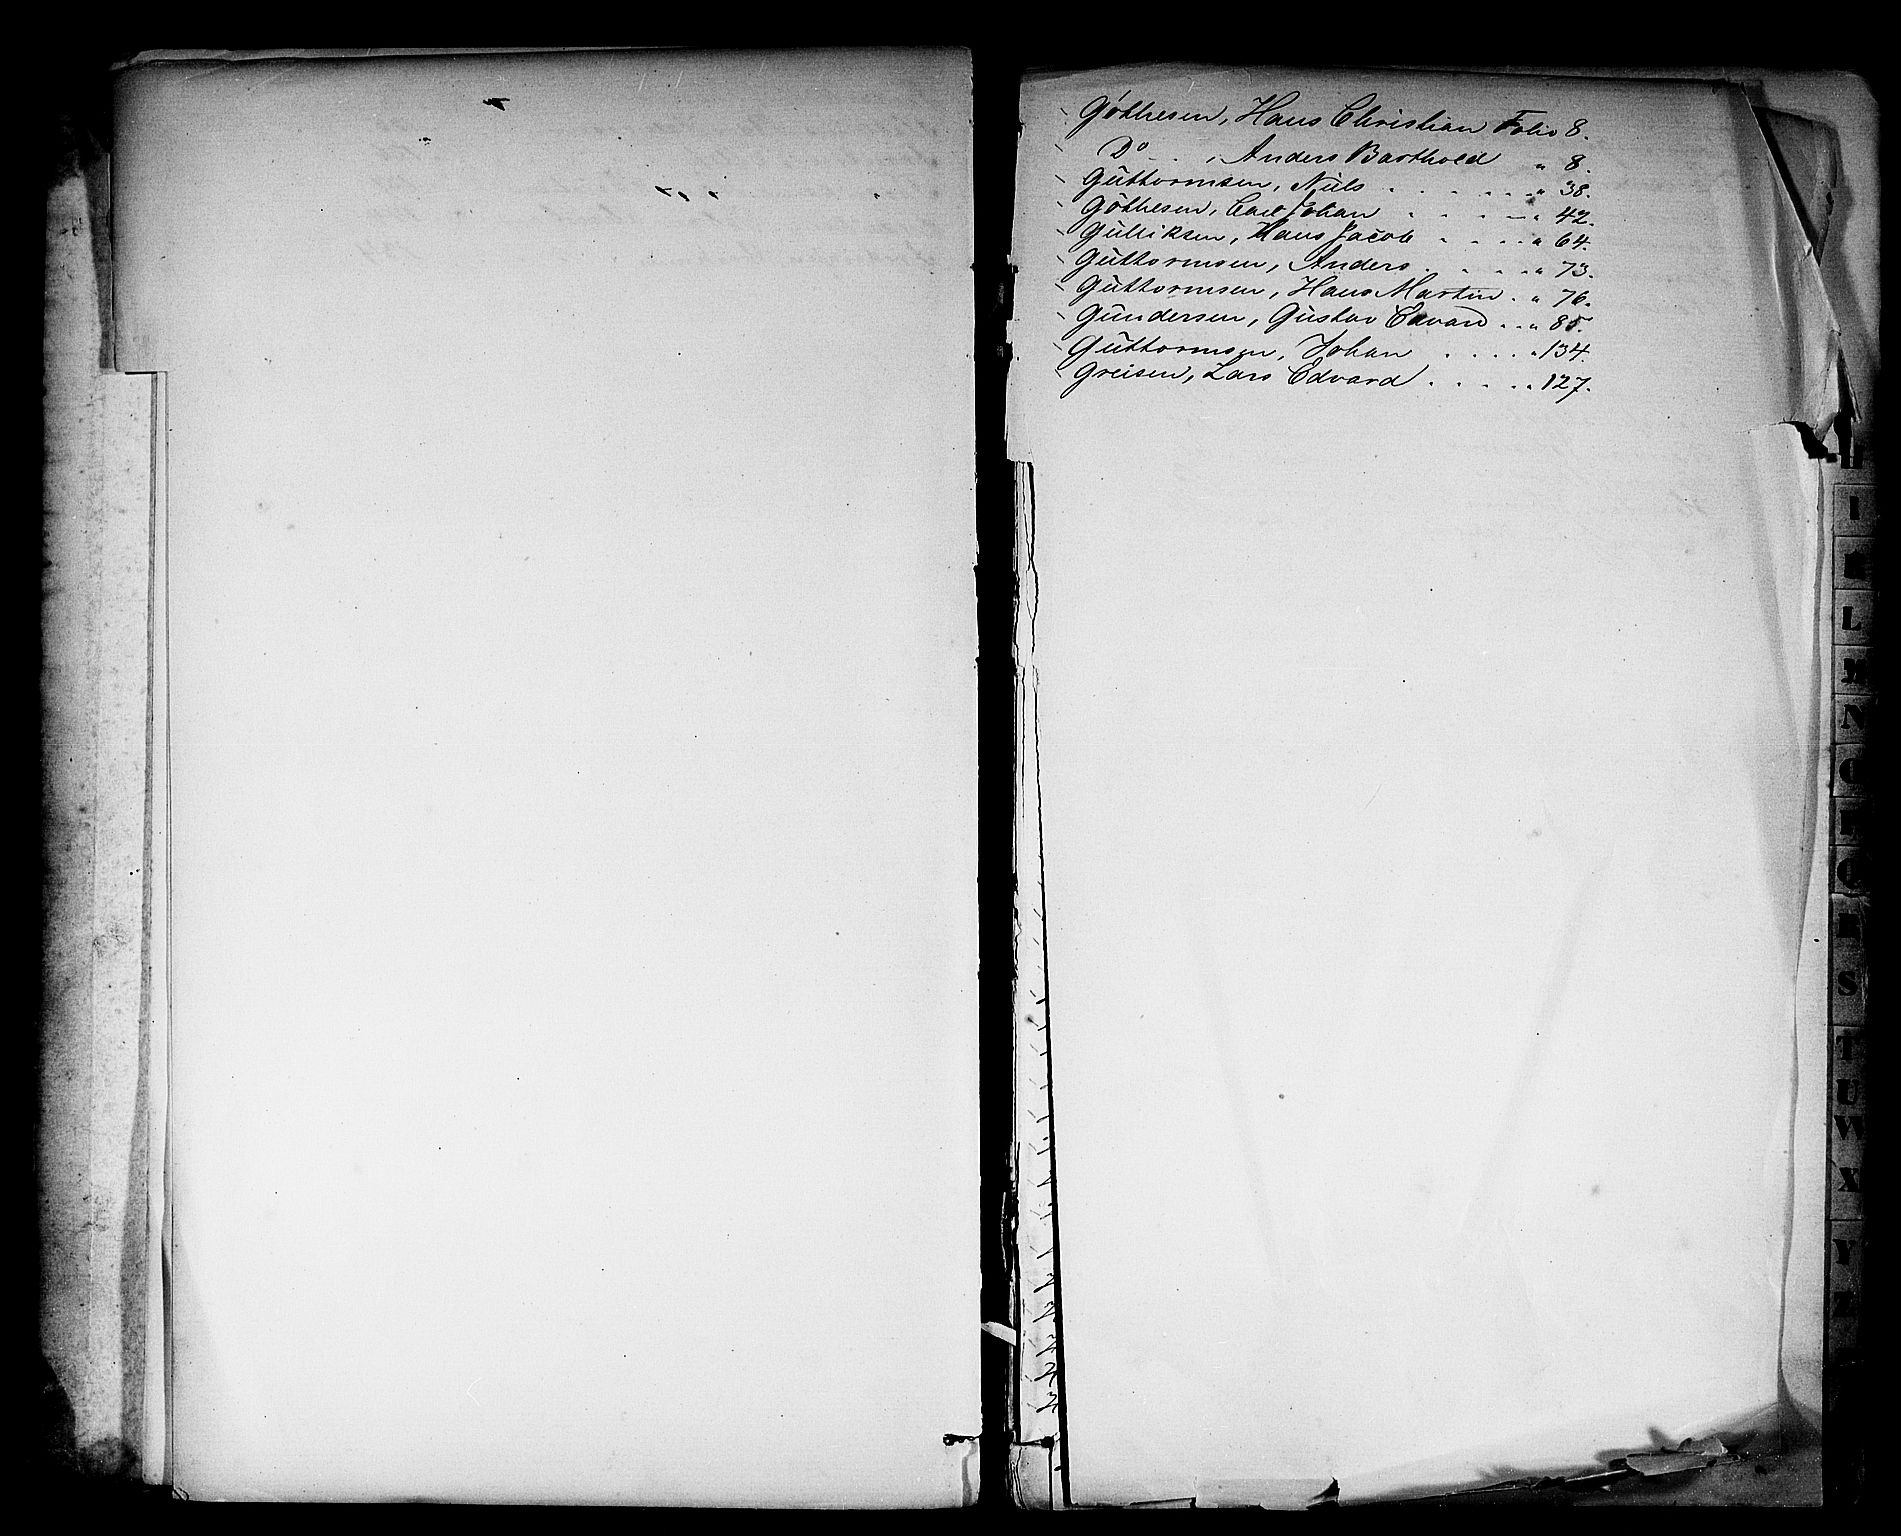 Gøthesen, Hans Christian Folio 8.
Do - . , Anders Barthold " 8.
Guttormsen, Niels . . . . . . " 38.
Gøthesen, Carl Johan . . . — " 42.
Gulliksen, Hans Jacob . . . . " 64.
Guttormsen, Anders . . . . . " 73.
Guttormsen, Hans Martin . " 76.
Gundersen, Gustav Edvard . . " 85.
Guttormsen, Johan . . . . " 134.
Greisen, Lars Edvard . . . . . " 127.
H
I
K
L
M
N
O
P
Q
R
S
T
U
W
X
Y
Z